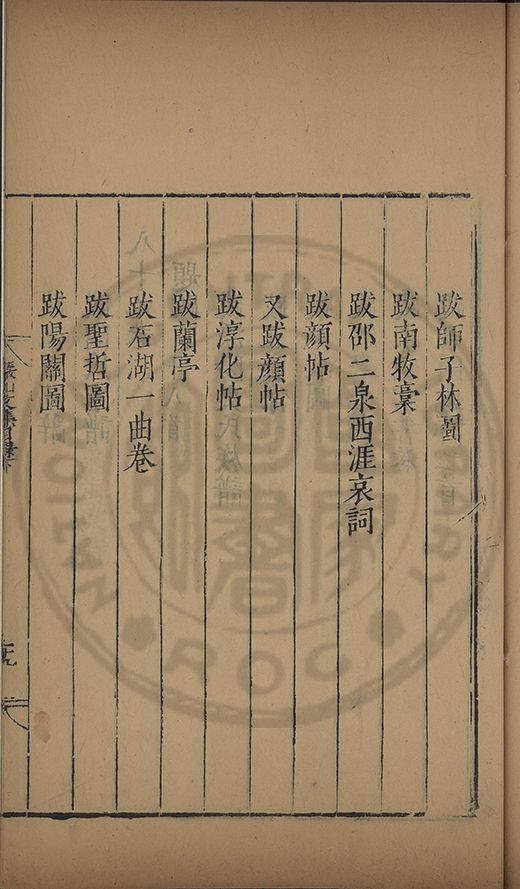 跋師子林圖
跋南牧藁
跋邵二泉西涯哀詞
跋顔帖
又跋顔帖
跋淳化帖
跋蘭亭
跋石湖一曲卷
跋聖哲圖
跋陽關圖